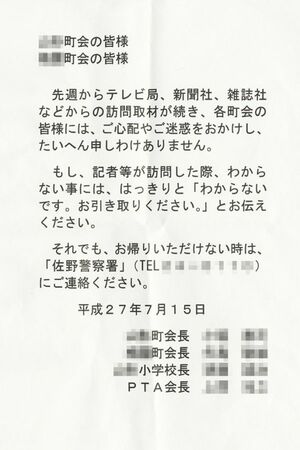 町会の皆様
町会の皆様
先週からテレビ局、新聞社、雑誌社
などからの訪問取材が続き、各町会の
皆様には、ご心配やご迷惑をおかけし、
たいへん申しわけありません。
もし、記者等が訪問した際、わから
ない事には、はっきりと「わからない
です。お引き取りください。」とお伝え
ください。
それでも、お帰りいただけない時は、
「佐野警察署」(TEL )
にご連絡ください。
平成27年7月15日
町会長
町会長
小学校長
PTA会長